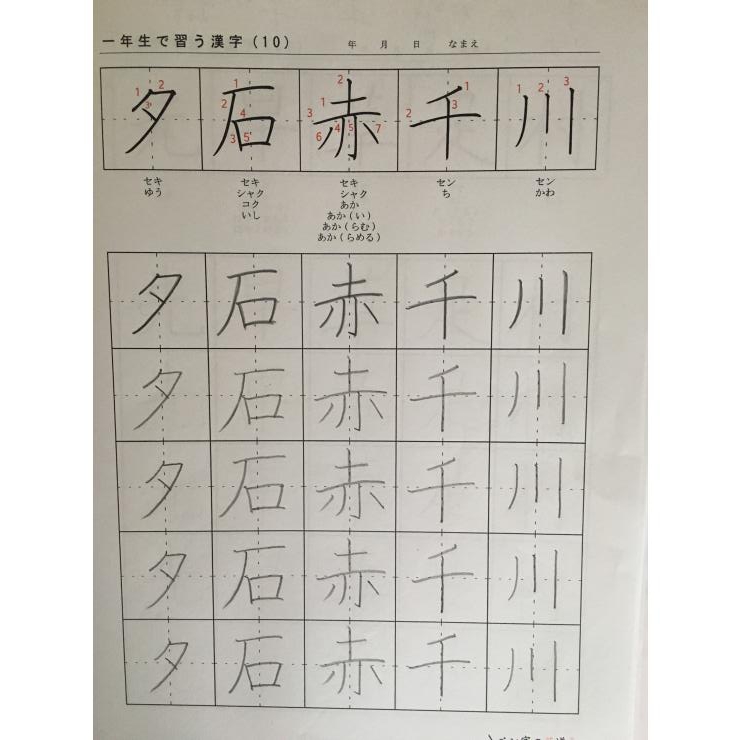 一年生で習う漢字(10) 年 月 日 なまえ
夕 石 赤 千 川
1 2 3 1 2 4 3 5 2 1 3 4 5 6 7 1 2 3 1 2 3
セキ セキ セキ セン セン
ゆう シャク シャク ち かわ
コク あか
いし あか(い)
あか(らむ)
あか(らめる)
夕 石 赤 千 川
夕 石 赤 千 川
夕 石 赤 千 川
夕 石 赤 千 川
夕 石 赤 千 川